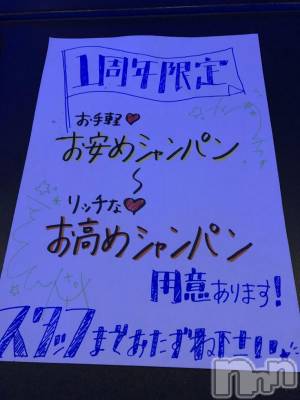 1周年限定
お手軽♥
お安めシャンパン
〜
リッチな♥
お高めシャンパン
用意あります!
スタッフまでおたずね下さい